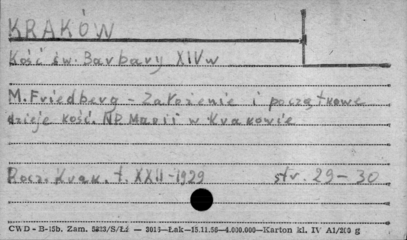 KRAKÓW
Kość św. Barbary XIV w
M. Friedberg - Założenie i początkowe
dzieje kość. NP Marii w Krakowie
Rocz. Krak. t. XXII-1929 str. 29-30
CWD - B-15b. Zam. 5823/S/Łi - 3013-Łak-15.11.56-4.000.000-Karton kl. IV A1/200 g